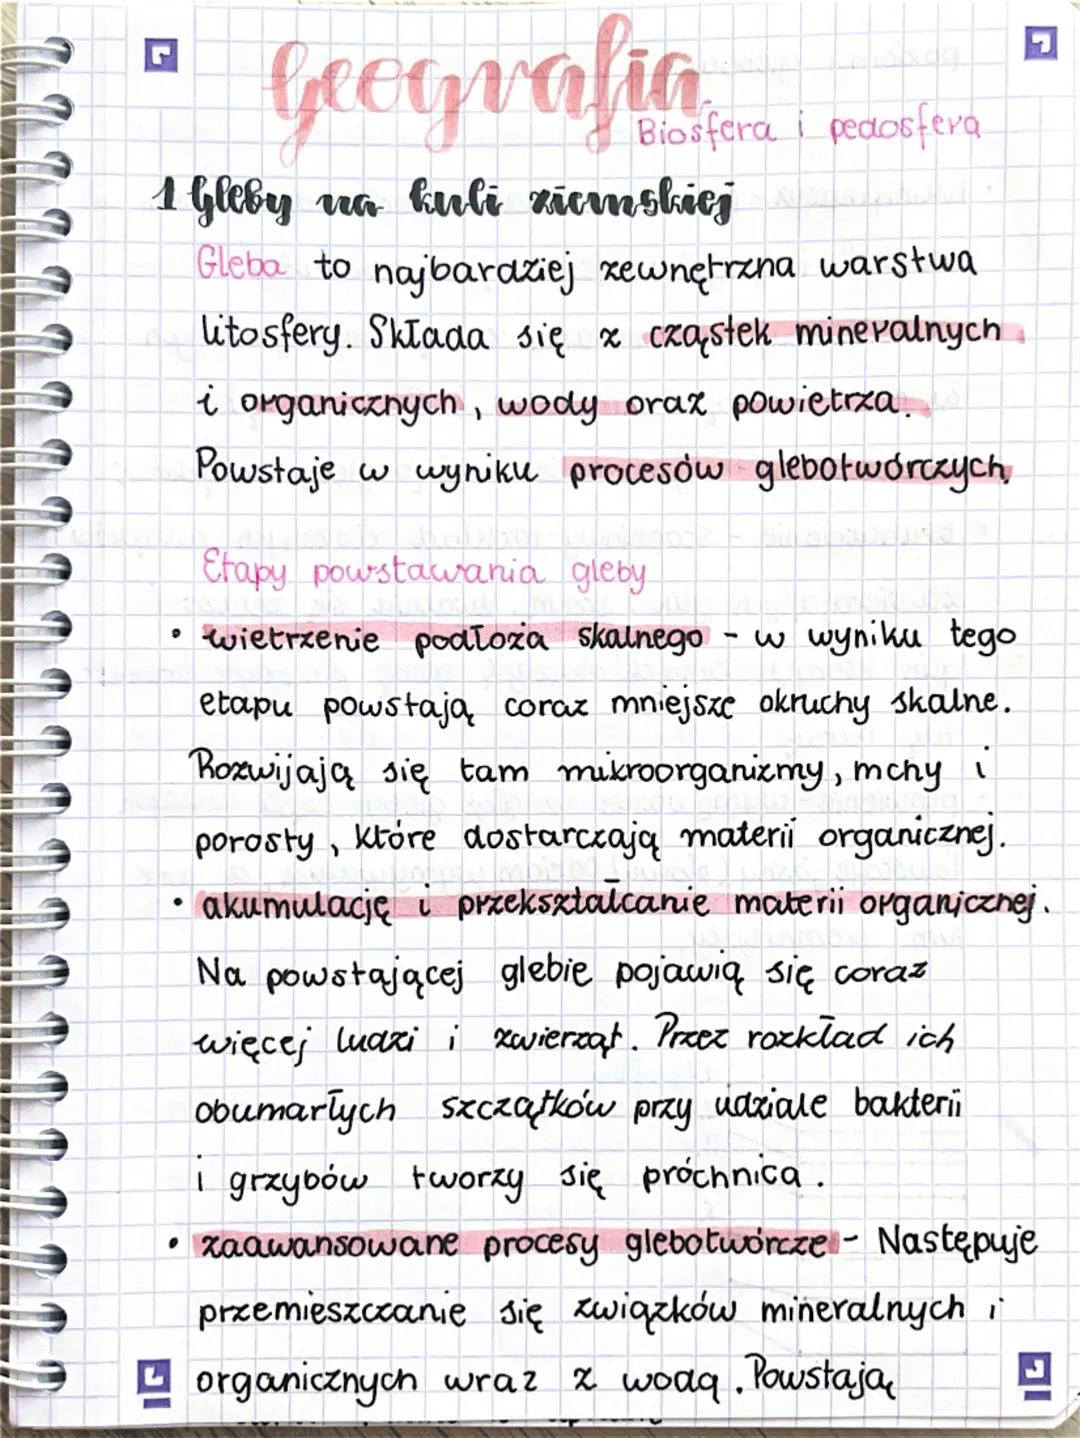 Geografia
Biosfera i pedosfera
1 Gleby na kuli ziemskiej
Gleba to najbardziej zewnętrzna warstwa
litosfery. Składa się z cząstek mineralnych
i organicznych, wody oraz powietrza.
Powstaje w wyniku procesów glebotwórczych.
Etapy powstawania gleby
• wietrzenie podłoża skalnego - w wyniku tego
etapu powstają coraz mniejsze okruchy skalne.
Rozwijają się tam mikroorganizmy, mchy i
porosty, które dostarczają materii organicznej.
• akumulację i przekształcanie materii organicznej.
Na powstającej glebie pojawią się coraz
więcej ludzi i zwierząt. Przez rozkład ich
obumarłych szczątków przy udziale bakterii
i grzybów tworzy się próchnica.
• zaawansowane procesy glebotwórcze - Następuje
przemieszczanie się związków mineralnych i
organicznych wraz z wodą. Powstają